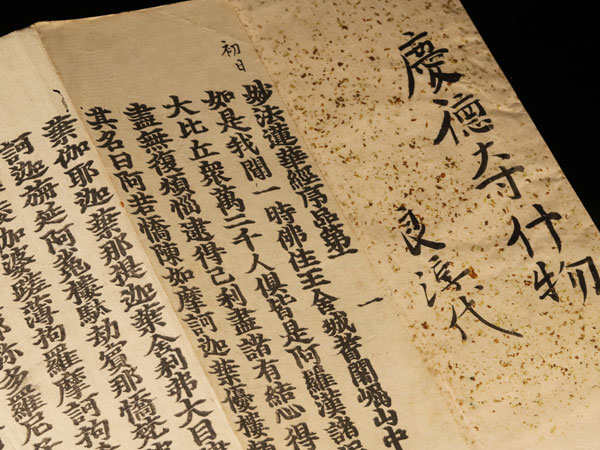 慶德寺什物
良淳代
初日
妙法蓮華經序品第一 一
如是我聞一時佛住王舍城耆闍崛山中
大比丘衆萬二千人俱皆是阿羅漢諸
盡無復煩惱逮得己利盡諸有結心得
其名曰阿若憍陳如摩訶迦葉優樓
葉伽耶迦葉那提迦葉舍利弗大目
訶迦旃延阿㝹樓馱劫賓那憍梵
伽婆蹉薄拘羅摩訶拘
多羅尼